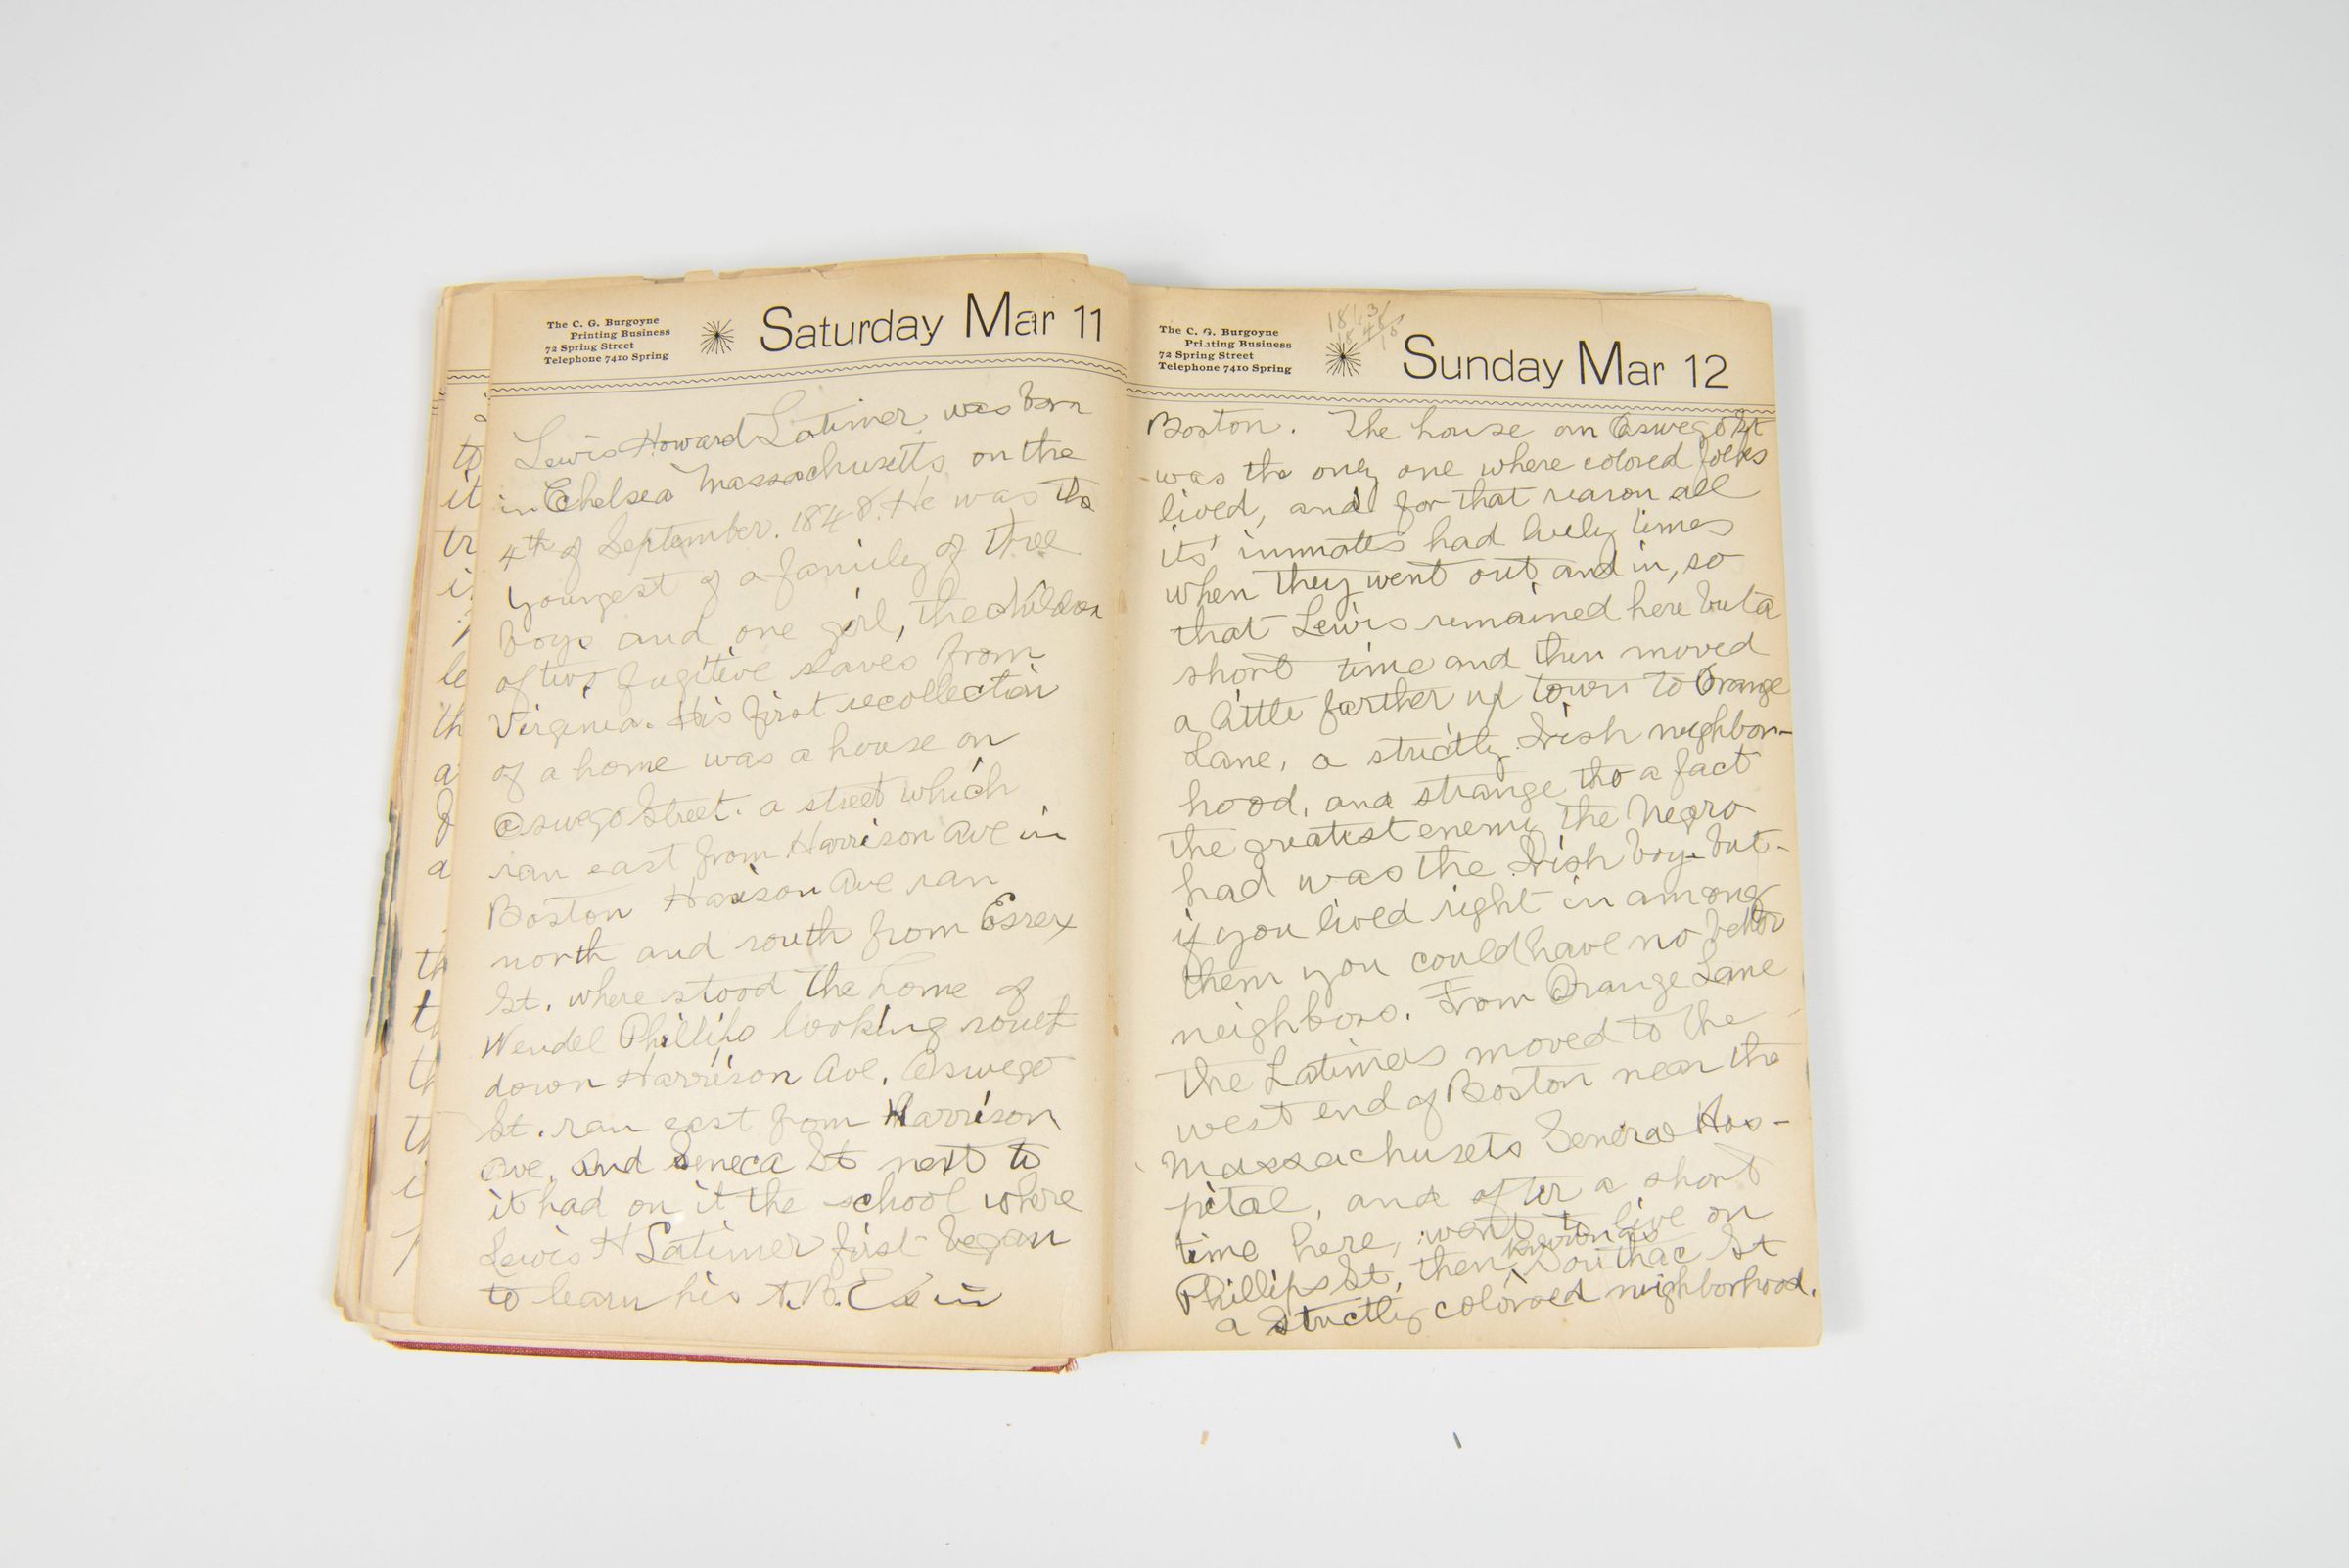 The C. G. Burgoyne
Printing Business
72 Spring Street
Telephone 7410 Spring
Saturday Mar 11
Lewis Howard Latimer was born
in Chelsea Massachusetts on the
4th of September. 1848. He was the
youngest of a family of three
boys and one girl, the children
of two fugitive slaves from
Virginia. His first recollection
of a home was a house on
Oswego Street. a street which
ran east from Harrison Ave in
Boston Harison Ave ran
north and south from Essex
St. where stood the home of
Wendel Phillips looking south
down Harrison Ave. Oswego
St. ran east from Harrison
Ave. and Seneca St next to
it had on it the school where
Lewis H Latimer first began
to learn his A.B.C's in
The C. G. Burgoyne
Printing Business
72 Spring Street
Telephone 7410 Spring
Sunday Mar 12
Boston. The house on Oswego St
was the only one where colored folks
lived, and for that reason all
its' inmates had lively times
when they went out and in, so
that Lewis remained here but a
short time and then moved
a little farther up town to Orange
Lane, a strictly Irish neighbor-
hood, and strange tho a fact
the greatest enemy the Negro
had was the Irish boy but
if you lived right in among
them you could have no better
neighbors. From Orange Lane
the Latimers moved to the
west end of Boston near the
Massachusets General Hos-
pital, and after a short
time here, went to live on
Phillips St, then known as Southac St
a strictly colored neighborhood.